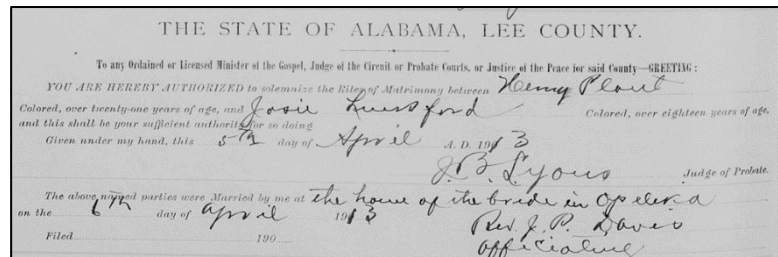 THE STATE OF ALABAMA, LEE COUNTY.
To any Ordained or Licensed Minister of the Gospel, Judge of the Circuit or Probate Courts, or Justice of the Peace for said County—GREETING:
YOU ARE HEREBY AUTHORIZED to solemnize the Rites of Matrimony between Henry Plant
Colored, over twenty-one years of age, and Josie Lunsford Colored, over eighteen years of age,
and this shall be your sufficient authority for so doing
Given under my hand, this 5th day of April A. D. 1913
J. B. Lyons Judge of Probate.
The above named parties were Married by me at the home of the bride in Opelika
on the 6th day of April 1913 Rev. J. P. Davis
Filed 190